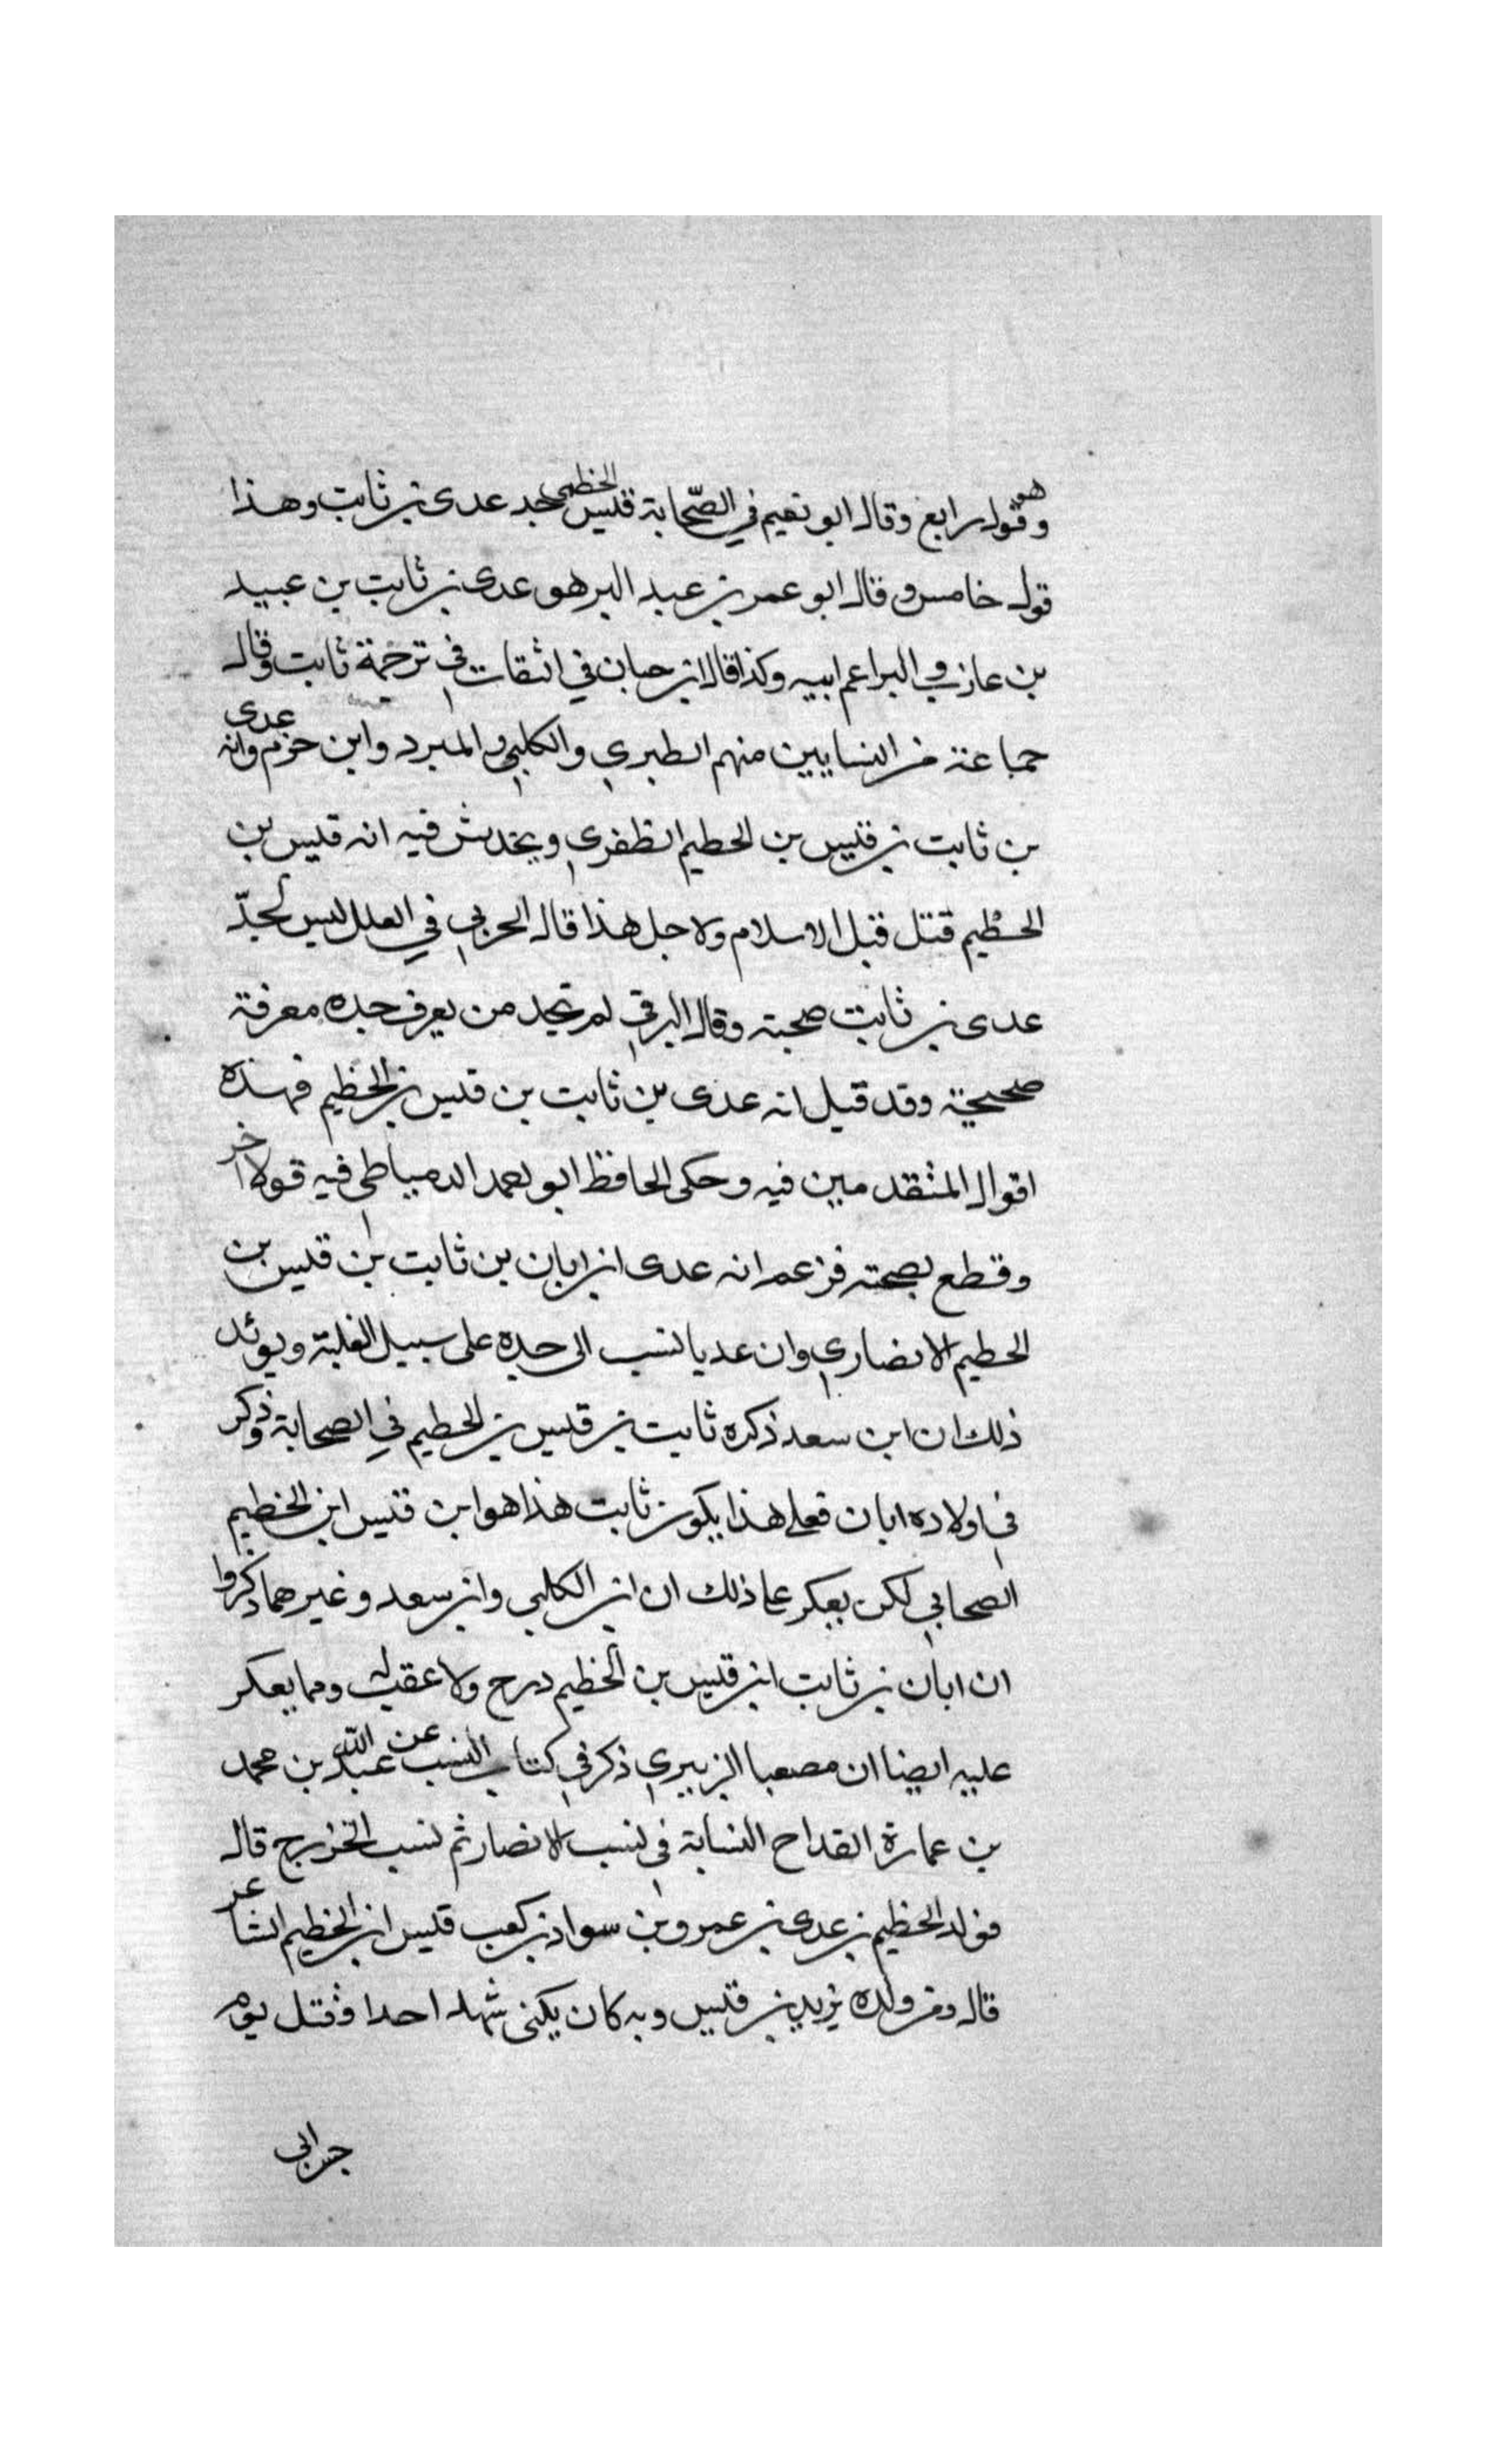 وهو قول رابع وقال ابو نعيم في الصّحابة قيس الخطمي جد عدى بن ثابت وهذا
قول خامس وقال ابو عمر بن عبد البر هو عدى بن ثابت بن عبيد
بن عازب البرا عم ابيه وكذا قال ابن حبان في الثقات في ترجمة ثابت وقال
جماعة من النسابيين منهم الطبري والكلبي والمبرد وابن حزم وانه عدى
بن ثابت بن قيس بن الحطيم الظفري ويخدش فيه انه قيس بن
الحطيم قتل قبل الاسلام ولاجل هذا قال الحربي في العلل ليس لجدّ
عدى بن ثابت صحبته وقال البرقي لم نجد من يعرف جده معرفة
صحيحة وقد قيل انه عدى بن ثابت بن قيس بن الخظيم فهذه
اقوال المتقدمين فيه وحكى الحافظ ابو محمد الدمياطي فيه قولا اخر
وقطع بصحته فزعم انه عدى ابن ابان بن ثابت بن قيس بن
الحطيم الانصاري وان عديا نسب الى جده على سبيل الغلبة ويوئد
ذلك ان ابن سعد ذكره ثابت بن قيس بن الحطيم في الصحابة وذكر
في اولاده ابان فعلى هذا يكون ثابت هذا هو ابن قيس ابن الخطيم
الصحابي لكن يعكر علي ذلك ان ابن الكلبي وابن سعد وغيرهما ذكروا
ان ابان بن ثابت ابن قيس بن الخظيم درج ولا عقب له ومما يعكر
عليه ايضا ان مصعبا الزبيري ذكر في كتاب النسب عن عبد الله بن محمد
بن عمارة القداح النسابة في نسب الانصار ثم نسب الخزرج قال
فولد الخظيم بن عدى بن عمرو بن سواد بن كعب قيس ابن الخظيم الشاعر
قال ومن ولده يزيد بن قيس وبه كان يكنى شهد احدا وقتل يوم
جسر ابى